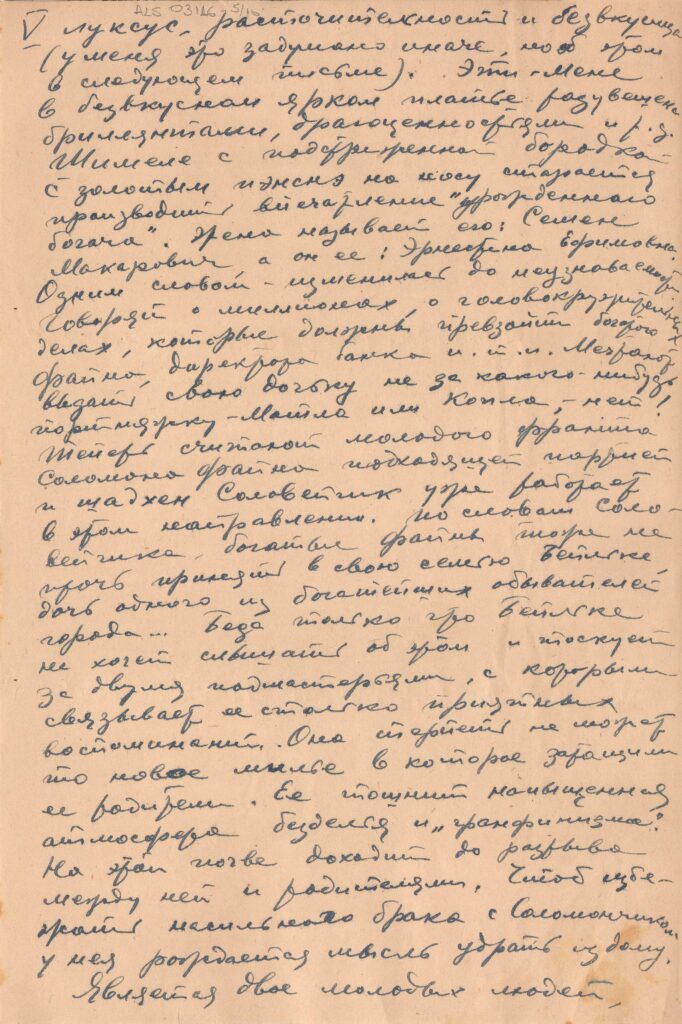 ALS 03/16 - 5/10
V луксус, расточительность и безвкусица
(у меня это задумано иначе, но об этом
в следующем письме). Эти-Мене
в безвкусном ярком платье разувешена
бриллянтами, драгоценностями и т.д.
Шимеле с подстриженной бородкой
с золотым пэнснэ на носу старается
производить впечатление "урожденного
богача". Жена называет его: Семен
Макарович а он ее: Эрнестина Ефимовна.
Одним словом - изменились до неузнаваемости
Говорят о миллионах, о головокружительных
делах, которые должны превзойти богатого
Файна, директора банка и.т.п. Мечтают
выдать свою дочьку не за какого-нибудь
портняжку - Мотла или Копла, - нет!
Теперь считают молодого франта
Соломона Файна подходящей партией
и шадхен Соловейчик уже работает
в этом направлении. По словам Соло-
вейчика, богатые Файны тоже не
прочь принять в свою семью Бейльке,
дочь одного из богатейших обывателей
города... Беда только что Бейльке
не хочет слышать об этом и тоскует
за двумя подмастерьями, с которыми
связывает ее столько приятных
воспоминаний. Она терпеть не может
то новое милье в которое затащили
ее родители. Ее тошнит напыщенная
атмосфера безделья и „гранфинизма".
На этой почве доходит до разрыва
между ней и родителями. Чтоб избе-
жать насильного брака с Соломончиком
у нея рождается мысль удрать из дому.
Является двое молодых людей,